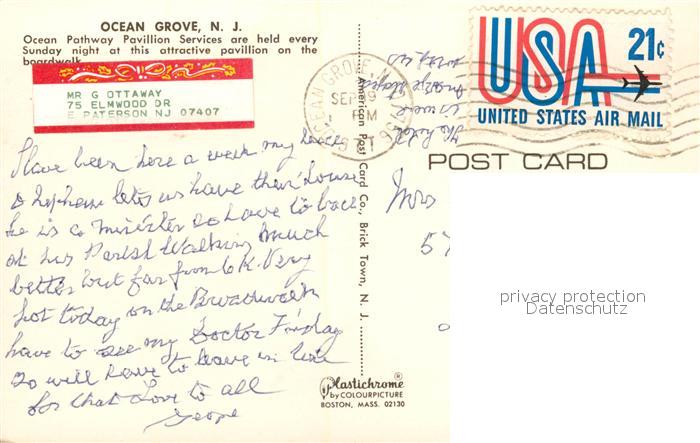 OCEAN GROVE, N. J.
Ocean Pathway Pavillion Services are held every
Sunday night at this attractive pavillion on the
boardwalk.
MR G OTTAWAY
75 ELMWOOD DR
E PATERSON NJ 07407
Have been here a week my niece
& Nephew lets us have their house
he is a minister so have to be back
at his Parish Walking much
better but far from O.K. Very
hot today on the Broadwalk
have to see my Doctor Friday
so will have to leave in time
for that Love to all
George
OCEAN GROVE
SEP 9
PM
USA 21c
UNITED STATES AIR MAIL
POST CARD
American Post Card Co., Brick Town, N. J.
Mrs
57
privacy protection
Datenschutz
Plastichrome®
by COLOURPICTURE
BOSTON, MASS. 02130